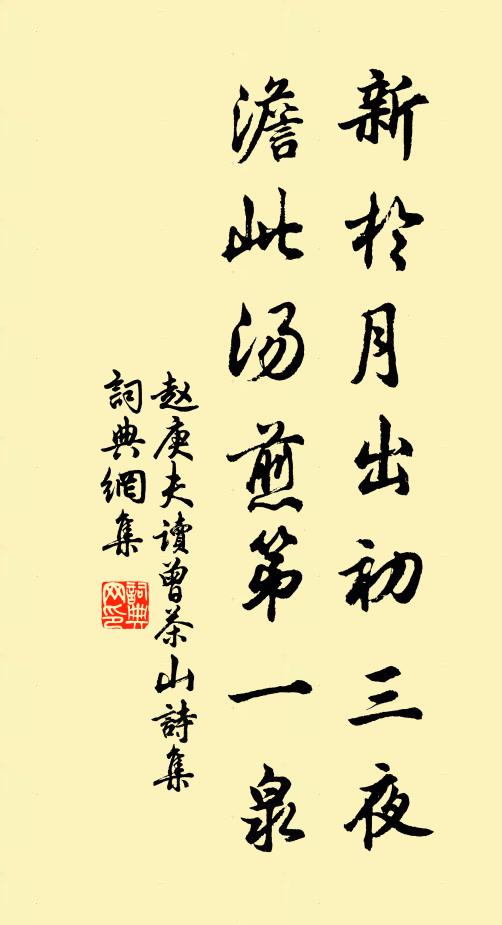 新於月出初三夜
澹此汤煎第一泉
赵庚夫讀曾茶山詩集
詞典網集
詞典网印